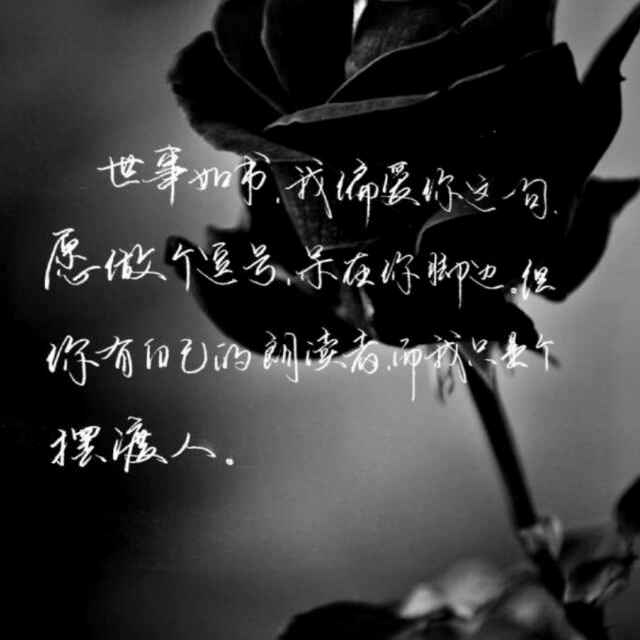 世事如书,我偏爱你这一句.
愿做个逗号,呆在你脚边。但
你有自己的朗读者,而我只是个
摆渡人。